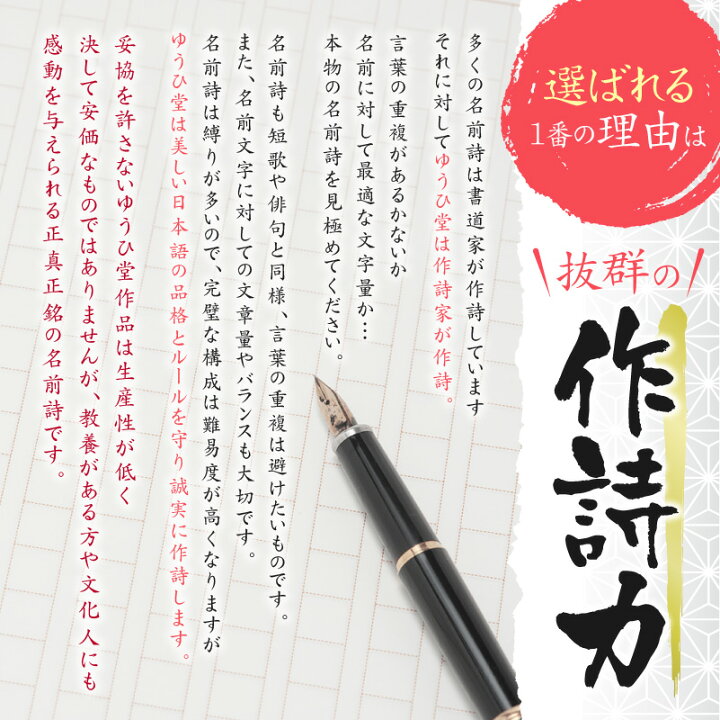 選ばれる
1番の理由は
抜群の
作詩力
多くの名前詩は書道家が作詩しています
それに対してゆうひ堂は作詩家が作詩。
言葉の重複があるかないか
名前に対して最適な文字量か…
本物の名前詩を見極めてください。
名前詩も短歌や俳句と同様、言葉の重複は避けたいものです。
また、名前文字に対しての文章量やバランスも大切です。
名前詩は縛りが多いので、完璧な構成は難易度が高くなりますが
ゆうひ堂は美しい日本語の品格とルールを守り誠実に作詩します。
妥協を許さないゆうひ堂作品は生産性が低く
決して安価なものではありませんが、教養がある方や文化人にも
感動を与えられる正真正銘の名前詩です。